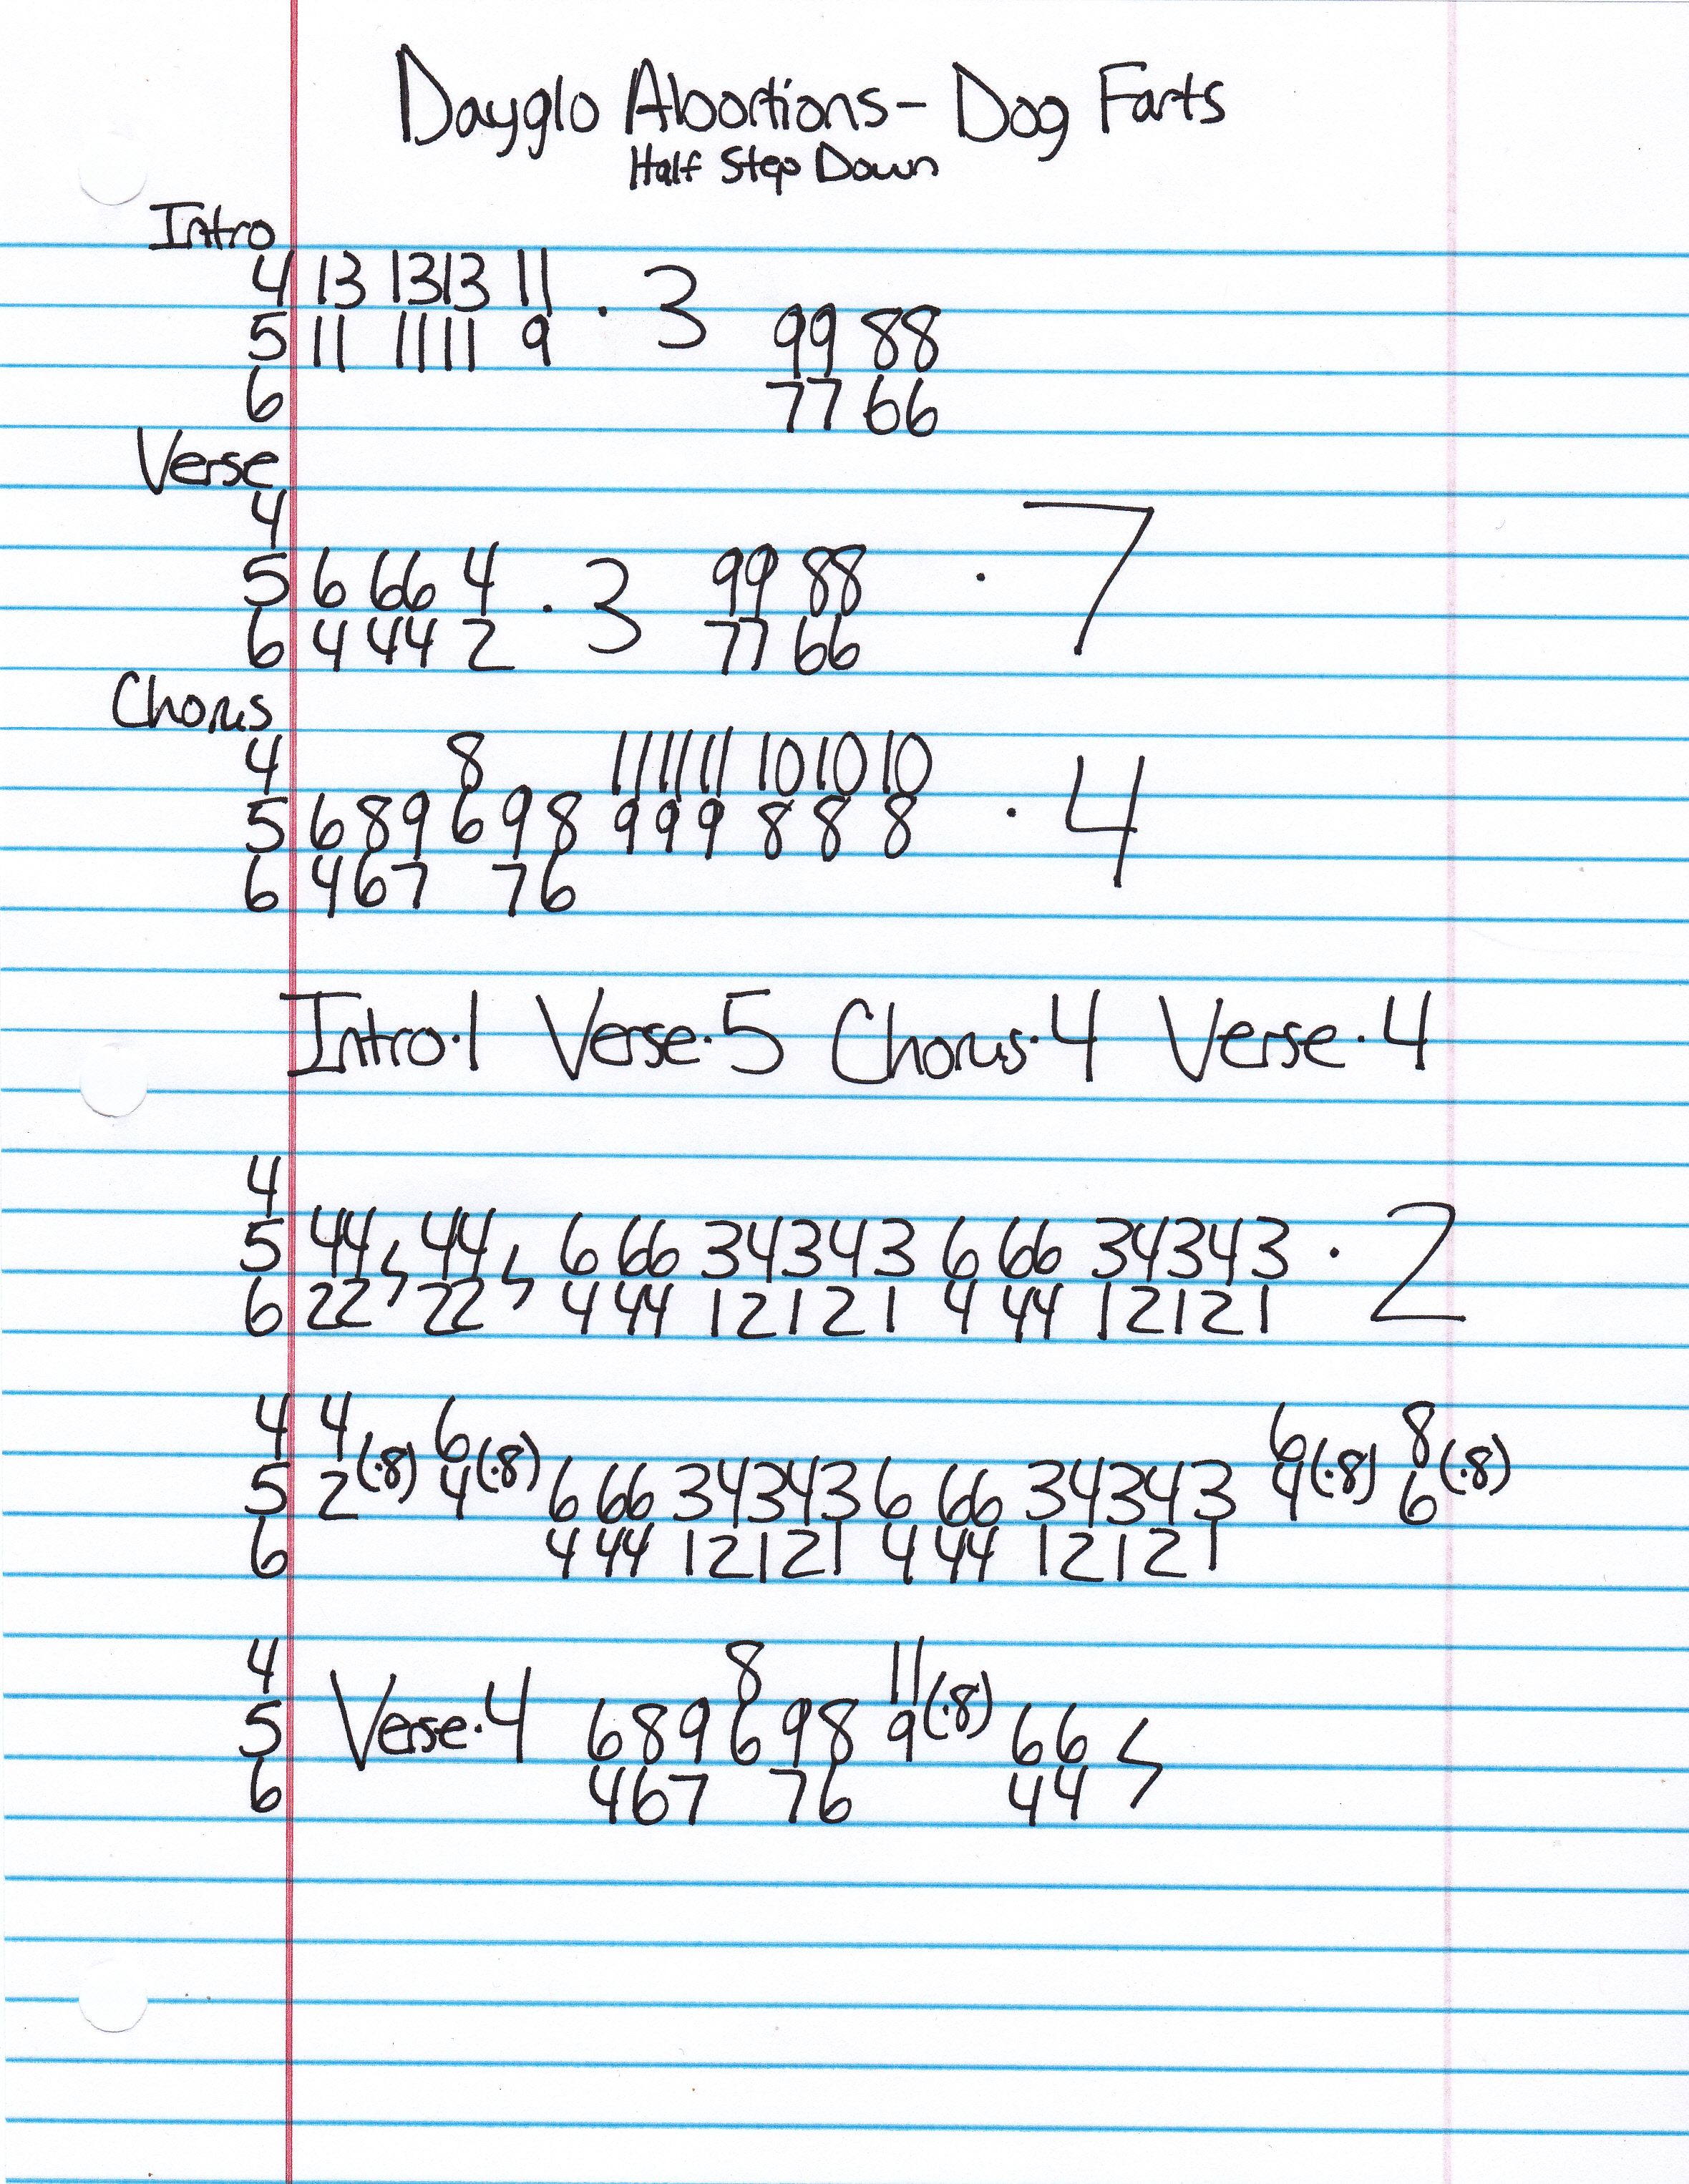 Dayglo Abortions - Dog Farts
Half Step Down
Intro
4 13 1313 11
5 11 1111 9 · 3 99 88
6 77 66
Verse
4
5 6 66 4 · 3 99 88 · 7
6 4 44 2 77 66
Chorus
4 8 111111 101010
5 689698 999 888 · 4
6 467 76
Intro·1 Verse·5 Chorus·4 Verse·4
4
5 44, 44, 6 66 34343 6 66 34343 · 2
6 22 22 4 44 12121 4 44 12121
4 4 6 6 8
5 2(·8) 4(·8) 6 66 34343 6 66 34343 4(·8) 6(·8)
6 4 44 12121 4 44 12121
4 8 11
5 Verse·4 689698 9(·8) 66
6 467 76 44